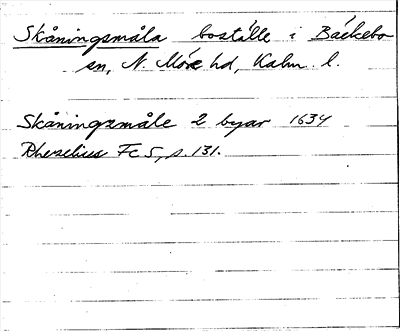 Skåningsmåla boställe i Bäckebo
sn, N. Möre hd, Kalm. l.
Skåningzmåle 2 byar 1634
Rhezelius Fc5, s. 131.